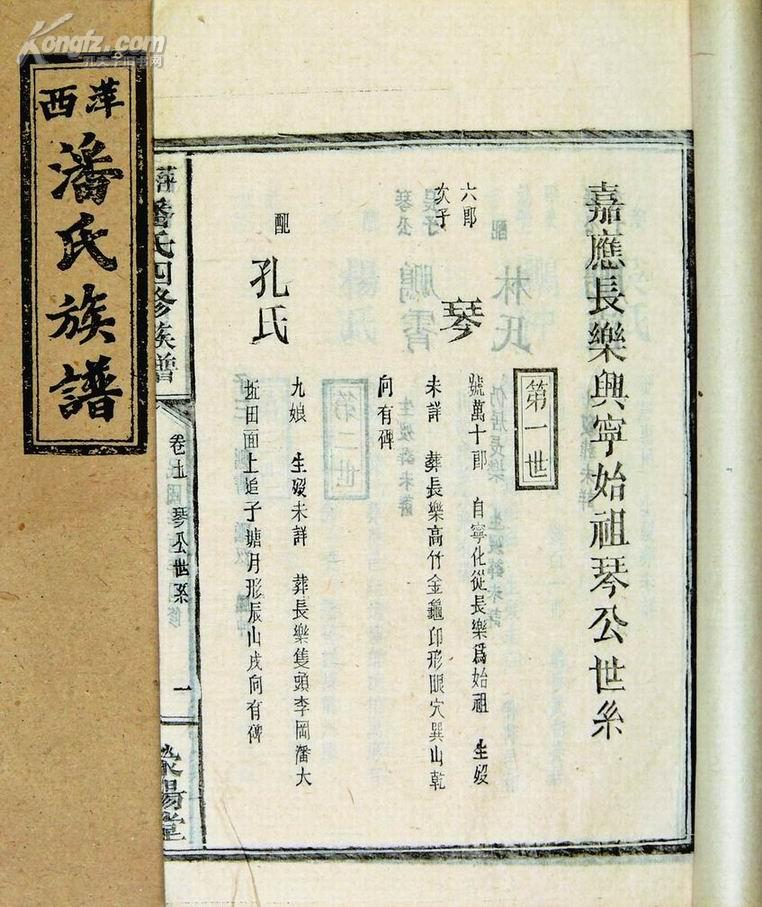 Kongfz.com
孔夫子旧书网
萍西
潘氏族譜
嘉應長樂興寧始祖琴公世系
第一世
六郎
次子
琴
號萬十郎 自寧化從長樂爲始祖 生殁
未詳 葬長樂高竹金龜印形眼穴巽山乾
向有碑
配
孔氏
九娘 生殁未詳 葬長樂隻頭李岡潘大
坵田面上 子塘月形辰山戌向有碑
潘氏四修族譜
卷 琴公世系
一
滎陽堂